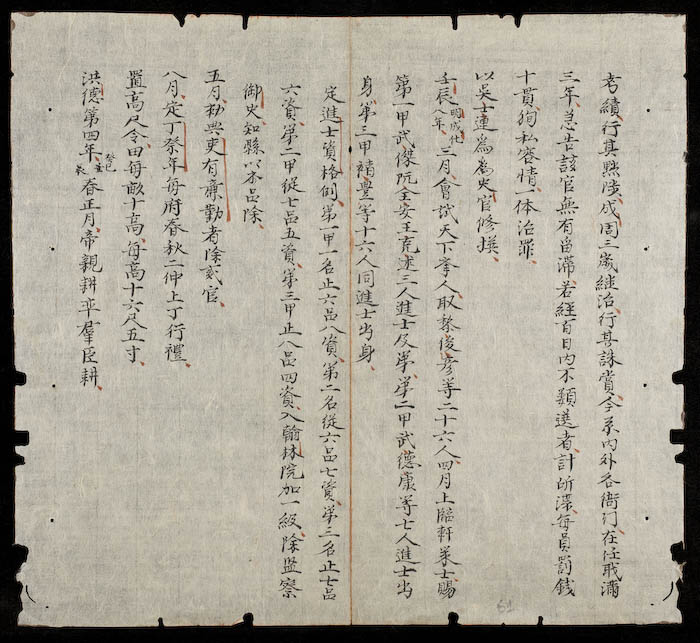 考績行其黜陟成周三歲継治行其誅賞今系内外各衙门在任戢滿
三年怠告該官無有留滯若経百日内不類选者計所深每員罰銭
十貫徇私容情一体治罪
以吳士連為爲史官修撰
壬辰八年明成化三月會試天下举人取黎俊彦等二十六人四月上臨軒策士賜
第一甲武傑阮全安王克述三人進士及第第二甲武德康等七人進士出
身第三甲褚豊等十六人同進士出身
定進士資格例第一甲一名正六品八資第二名従六品七資第三名正七品
六資第二甲従七品五資第三甲正八品四資入翰林院加一級除監察
御史知縣以本品除
五月勅典吏有廉勤者除弍官
八月定丁祭年每府春秋二仲上丁行禮
置高尺令田每畝十高每高十六尺五寸
洪德第四年癸巳春正月帝親耕率羣臣耕
61